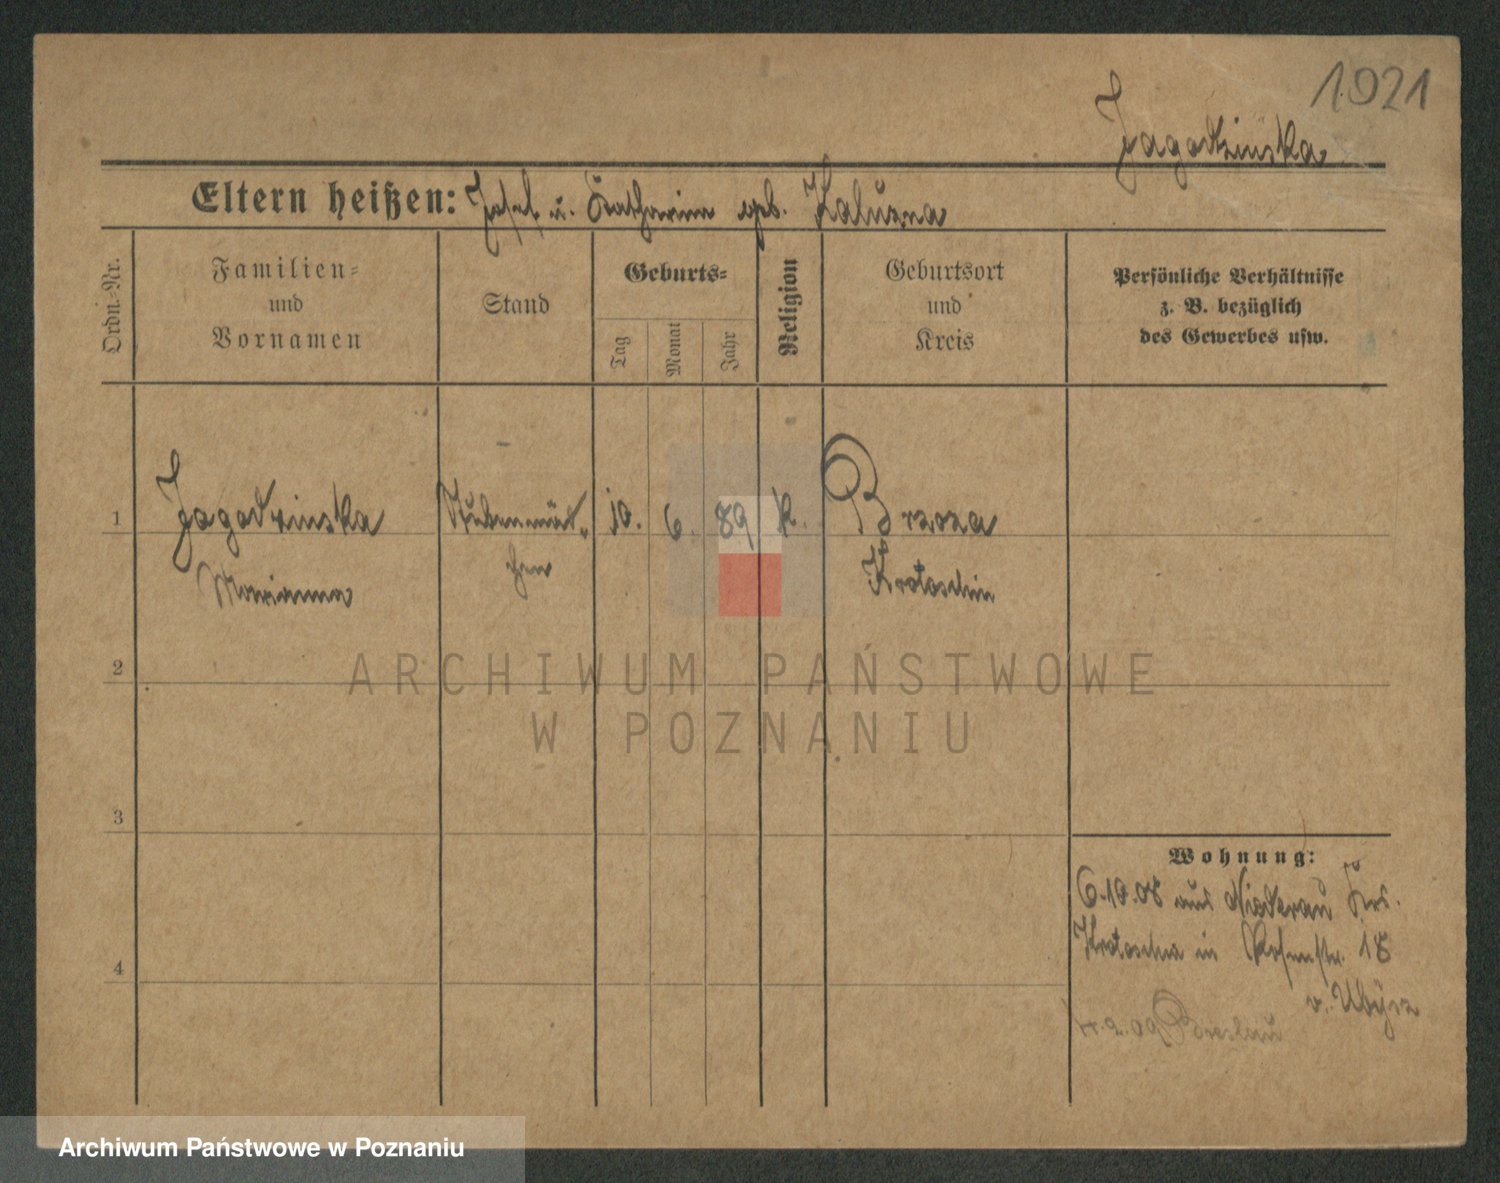 1921
Jagodzinska
Eltern heißen: Josef u. Katharina geb. Kaluzna
Ordn.-Nr.
Familien-
und
Vornamen
Stand
Geburts-
Tag
Monat
Jahr
Religion
Geburtsort
und
Kreis
Persönliche Verhältnisse
z. B. bezüglich
des Gewerbes usw.
1
Jagodzinska
Marianna
Stubenmäd-
chen
10.
6.
89
k.
Brzoza
Krotoschin
2
ARCHIWUM PAŃSTWOWE
W POZNANIU
3
Wohnung:
6.10.08 aus Niederau Krs.
Krotoschin in Rosenstr. 18
v.
4
4.2.09 Breslau
Archiwum Państwowe w Poznaniu